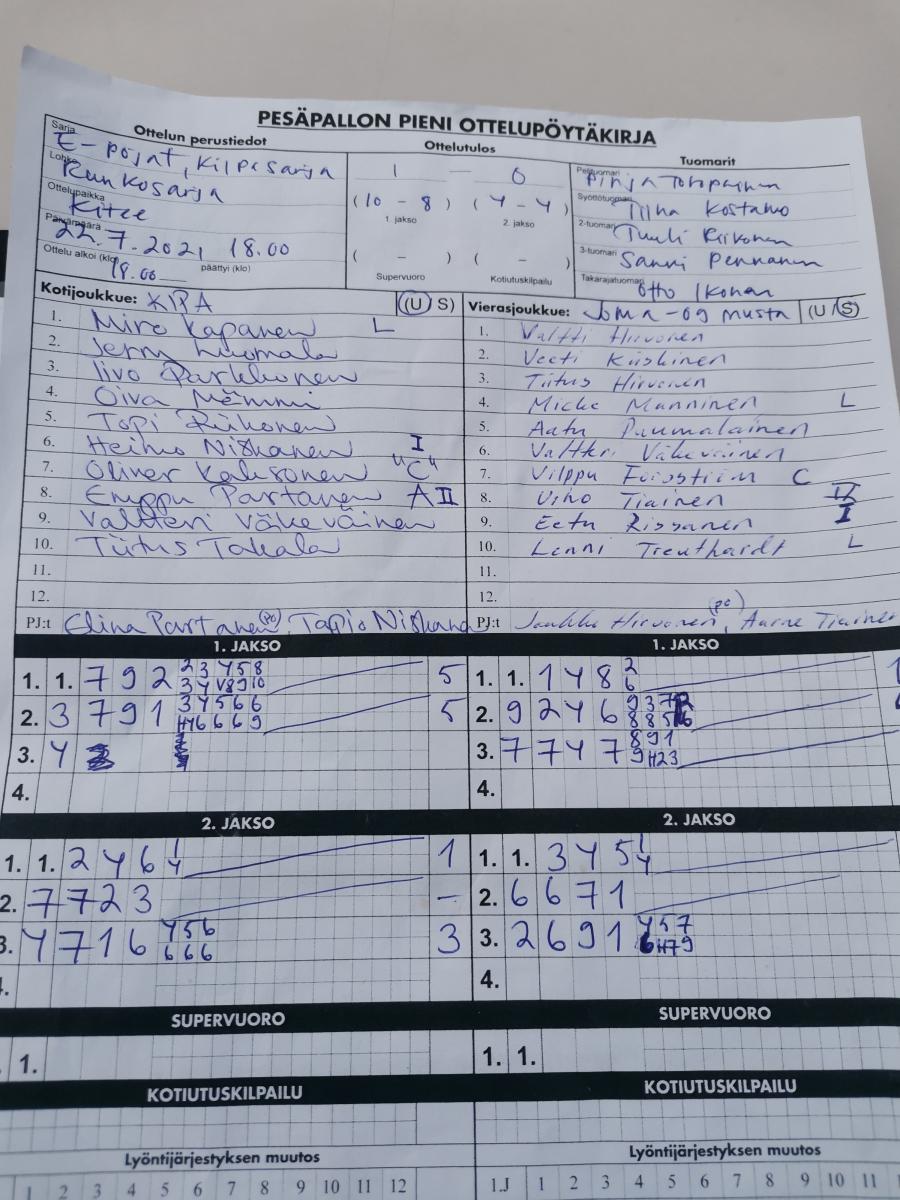 PESÄPALLON PIENI OTTELUPÖYTÄKIRJA
Ottelun perustiedot
Ottelutulos
Tuomarit
Sarja
E-pojat, kilpasarja
Lohko
Runkosarja
Ottelupaikka
Kitee
Päivämäärä
22.7.2021, 18.00
Ottelu alkoi (klo)
18.00
päättyi (klo)
1 — 0
(10 - 8) (4 - 4)
1. jakso 2. jakso
( - ) ( - )
Supervuoro Kotiutuskilpailu
Pelituomari
Pinja
Syöttötuomari
Tiina Kostamo
2-tuomari
Tuuli Riikonen
3-tuomari
Sanni Pennanen
Takarajatuomari
Otto Ikonen
Kotijoukkue: KIPA (U S)
1. Miro Kapanen L
2. Jerry Luomala
3. Iivo Parkkonen
4. Oiva Mömmi
5. Topi Riikonen
6. Heimo Niskanen I
7. Oliver Kaksonen "C"
8. Emppu Partanen A II
9. Valtteri Väkeväinen
10. Tiitus Takala
11.
12.
PJ:t Elina Partanen (pö), Tapio Niskanen
Vierasjoukkue: JoMa-09 musta (U S)
1. Valtti Hirvonen
2. Veeti Kiiskinen
3. Tiitus Hirvonen
4. Micke Manninen L
5. Aatu Puumalainen
6. Valtteri Väkeväinen
7. Vilppu C
8. Uho Tiainen II
9. Eetu Rissanen I
10. Lenni Treuthardt L
11.
12.
PJ:t Jaakko Hirvonen (pö), Aarne Tiainen
1. JAKSO
1. 1. 7 9 2 2 3 4 5 8 5
3 4 V8 9 10
2. 3 7 9 1 3 4 5 6 6 5
H4 6 6 6 9
3. 4
4.
1. JAKSO
1. 1. 1 4 8 2 1
6
2. 9 2 4 6 9 3 7
8 8 5
3. 7 7 4 7 8 9 1
9 H2 3
4.
2. JAKSO
1. 1. 2 4 6 1 1
4
2. 7 7 2 3 -
3. 4 7 1 6 4 5 6 3
6 6 6
2. JAKSO
1. 1. 3 4 5 1
4
2. 6 6 7 1
3. 2 6 9 1 4 5 7
6 H7 9
4.
SUPERVUORO
1.
SUPERVUORO
1. 1.
KOTIUTUSKILPAILU
KOTIUTUSKILPAILU
Lyöntijärjestyksen muutos
1 2 3 4 5 6 7 8 9 10 11 12
Lyöntijärjestyksen muutos
1.J 1 2 3 4 5 6 7 8 9 10 11